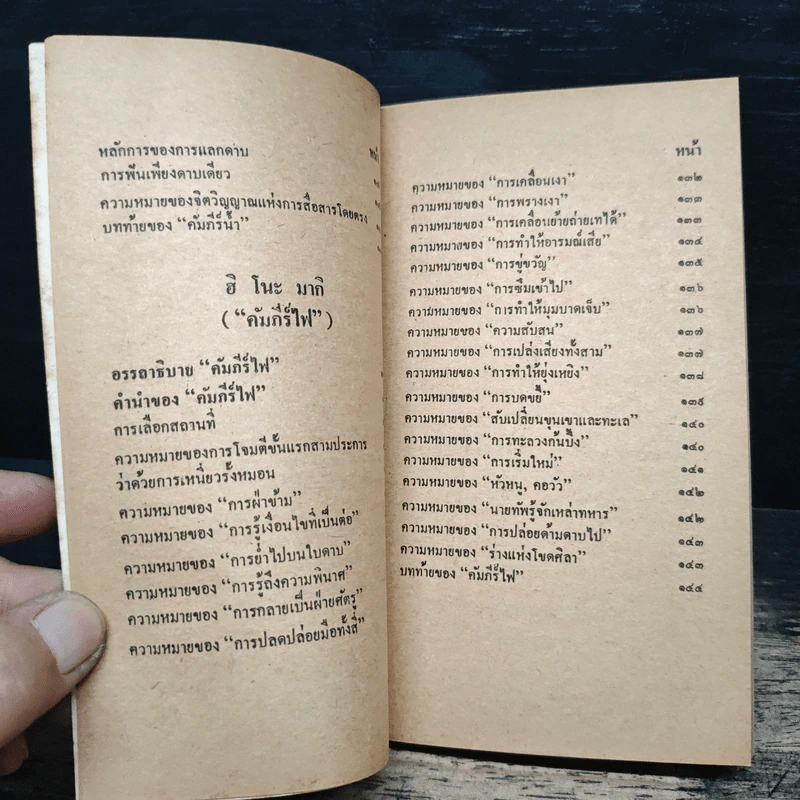 หน้า
หลักการของการแลกดาบ
การฟันเพียงดาบเดียว
ความหมายของจิตวิญญาณแห่งการสื่อสารโดยตรง
บทท้ายของ “คัมภีร์น้ำ”
ฮิ โนะ มากิ
(“คัมภีร์ไฟ”)
อรรถาธิบาย “คัมภีร์ไฟ”
คำนำของ “คัมภีร์ไฟ”
การเลือกสถานที่
ความหมายของการโจมตีขั้นแรกสามประการ
ว่าด้วยการเหนี่ยวรั้งหมอน
ความหมายของ “การฝ่าข้าม”
ความหมายของ “การรู้เงื่อนไขที่เป็นต่อ”
ความหมายของ “การย่ำไปบนใบดาบ”
ความหมายของ “การรู้ถึงความพินาศ”
ความหมายของ “การกลายเป็นฝ่ายศัตรู”
ความหมายของ “การปลดปล่อยมือทั้งสี่”
หน้า
ความหมายของ “การเคลื่อนเงา” ๑๓๒
ความหมายของ “การพรางเงา” ๑๓๓
ความหมายของ “การเคลื่อนย้ายถ่ายเทได้” ๑๓๓
ความหมายของ “การทำให้อารมณ์เสีย” ๑๓๔
ความหมายของ “การขู่ขวัญ” ๑๓๕
ความหมายของ “การซึมเข้าไป” ๑๓๖
ความหมายของ “การทำให้มุมบาดเจ็บ” ๑๓๖
ความหมายของ “ความสับสน” ๑๓๗
ความหมายของ “การเปล่งเสียงทั้งสาม” ๑๓๗
ความหมายของ “การทำให้ยุ่งเหยิง” ๑๓๘
ความหมายของ “การบดขยี้” ๑๓๙
ความหมายของ “สับเปลี่ยนขุนเขาและทะเล” ๑๔๐
ความหมายของ “การทะลวงก้นบึ้ง” ๑๔๐
ความหมายของ “การเริ่มใหม่” ๑๔๑
ความหมายของ “หัวหนู, คอวัว” ๑๔๒
ความหมายของ “นายทัพรู้จักเหล่าทหาร” ๑๔๒
ความหมายของ “การปล่อยด้ามดาบไป” ๑๔๓
ความหมายของ “ร่างแห่งโขดศิลา” ๑๔๓
บทท้ายของ “คัมภีร์ไฟ” ๑๔๔